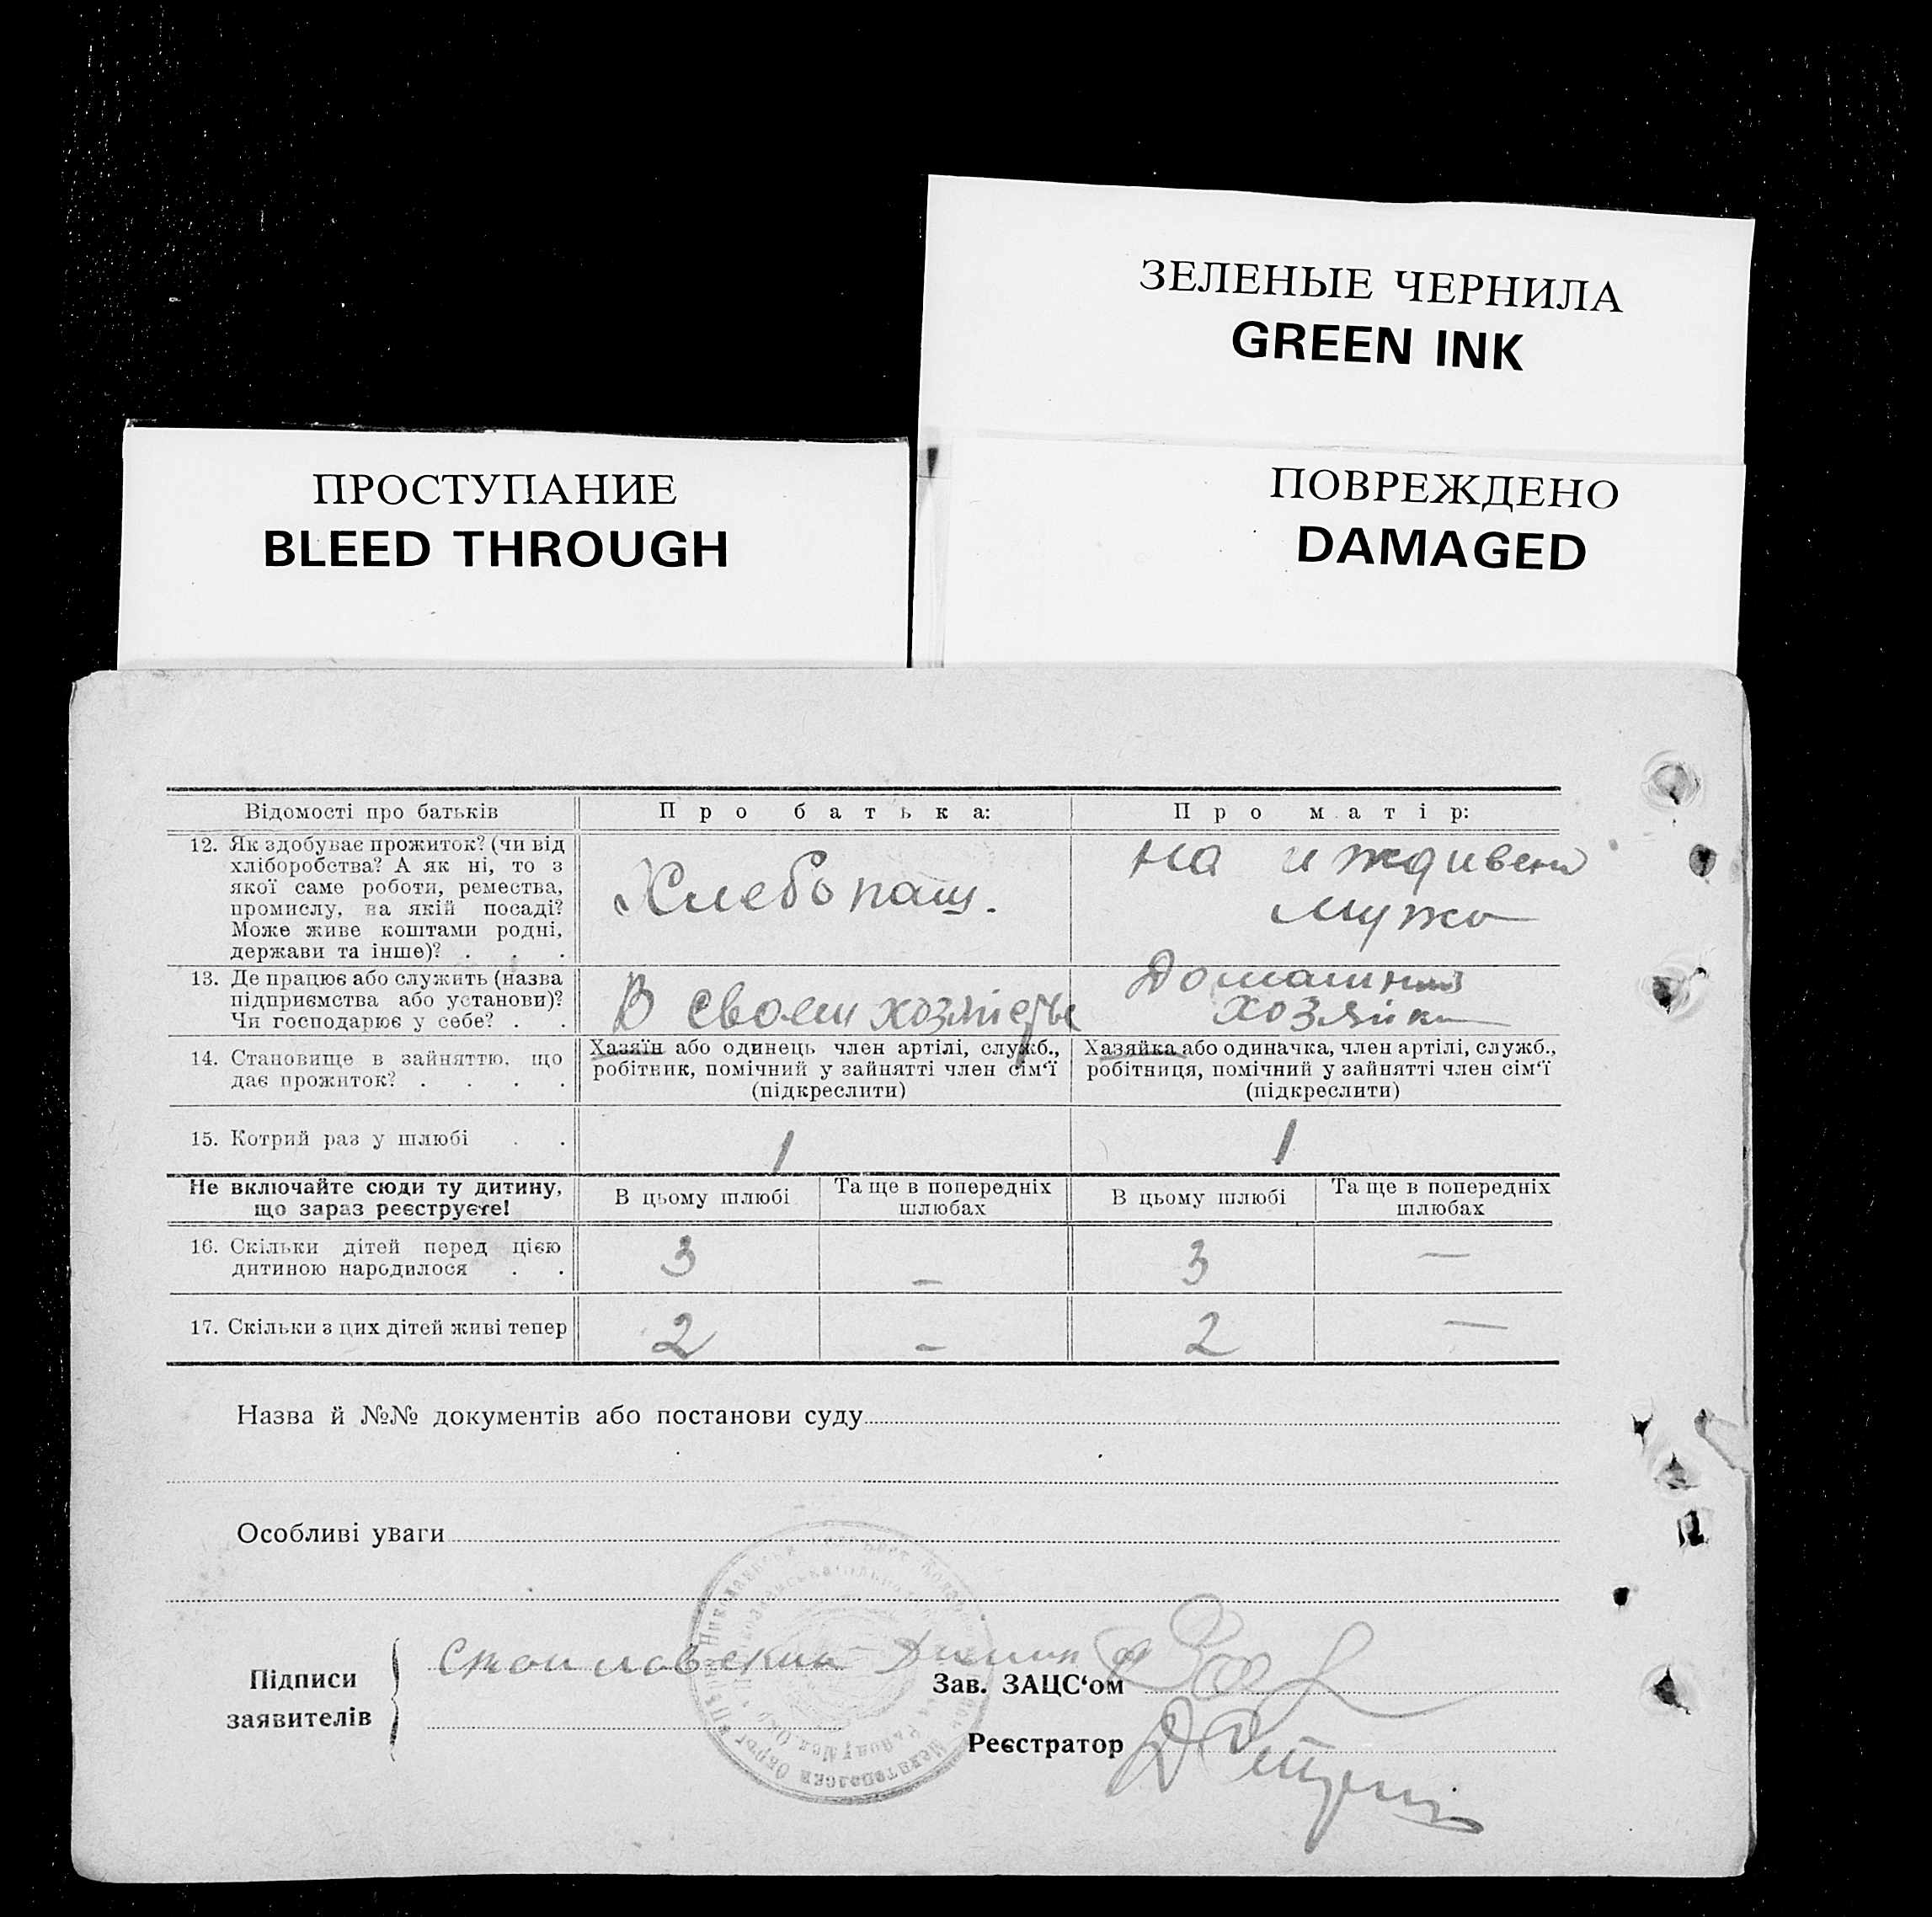 ЗЕЛЕНЫЕ ЧЕРНИЛА
GREEN INK
ПРОСТУПАНИЕ
BLEED THROUGH
ПОВРЕЖДЕНО
DAMAGED
Відомості про батьків
Про батька:
Про матір:
12. Як здобуває прожиток? (чи від
хліборобства? А як ні, то з
якої саме роботи, ремества,
промислу, на якій посаді?
Може живе коштами родні,
держави та інше)? . . .
Хлебопаш.
на иждивени
мужа
13. Де працює або служить (назва
підприємства або установи)?
Чи господарює у себе? . .
В своем
хозяйка
14. Становище в зайняттю, що
дає прожиток? . . . .
Хазяїн або одинець член артілі, служб.,
робітник, помічний у зайнятті член сім‘ї
(підкреслити)
Хазяйка або одиначка, член артілі, служб.,
робітниця, помічний у зайнятті член сім‘ї
(підкреслити)
15. Котрий раз у шлюбі . .
1
1
Не включайте сюди ту дитину,
що зараз реєструєте!
В цьому шлюбі
Та ще в попередніх
шлюбах
В цьому шлюбі
Та ще в попередніх
шлюбах
16. Скільки дітей перед цією
дитиною народилося . .
3
–
3
—
17. Скільки з цих дітей живі тепер
2
–
2
—
Назва й №№ документів або постанови суду
Особливі уваги
Підписи
заявителів
Зав. ЗАЦС‘ом
Реєстратор